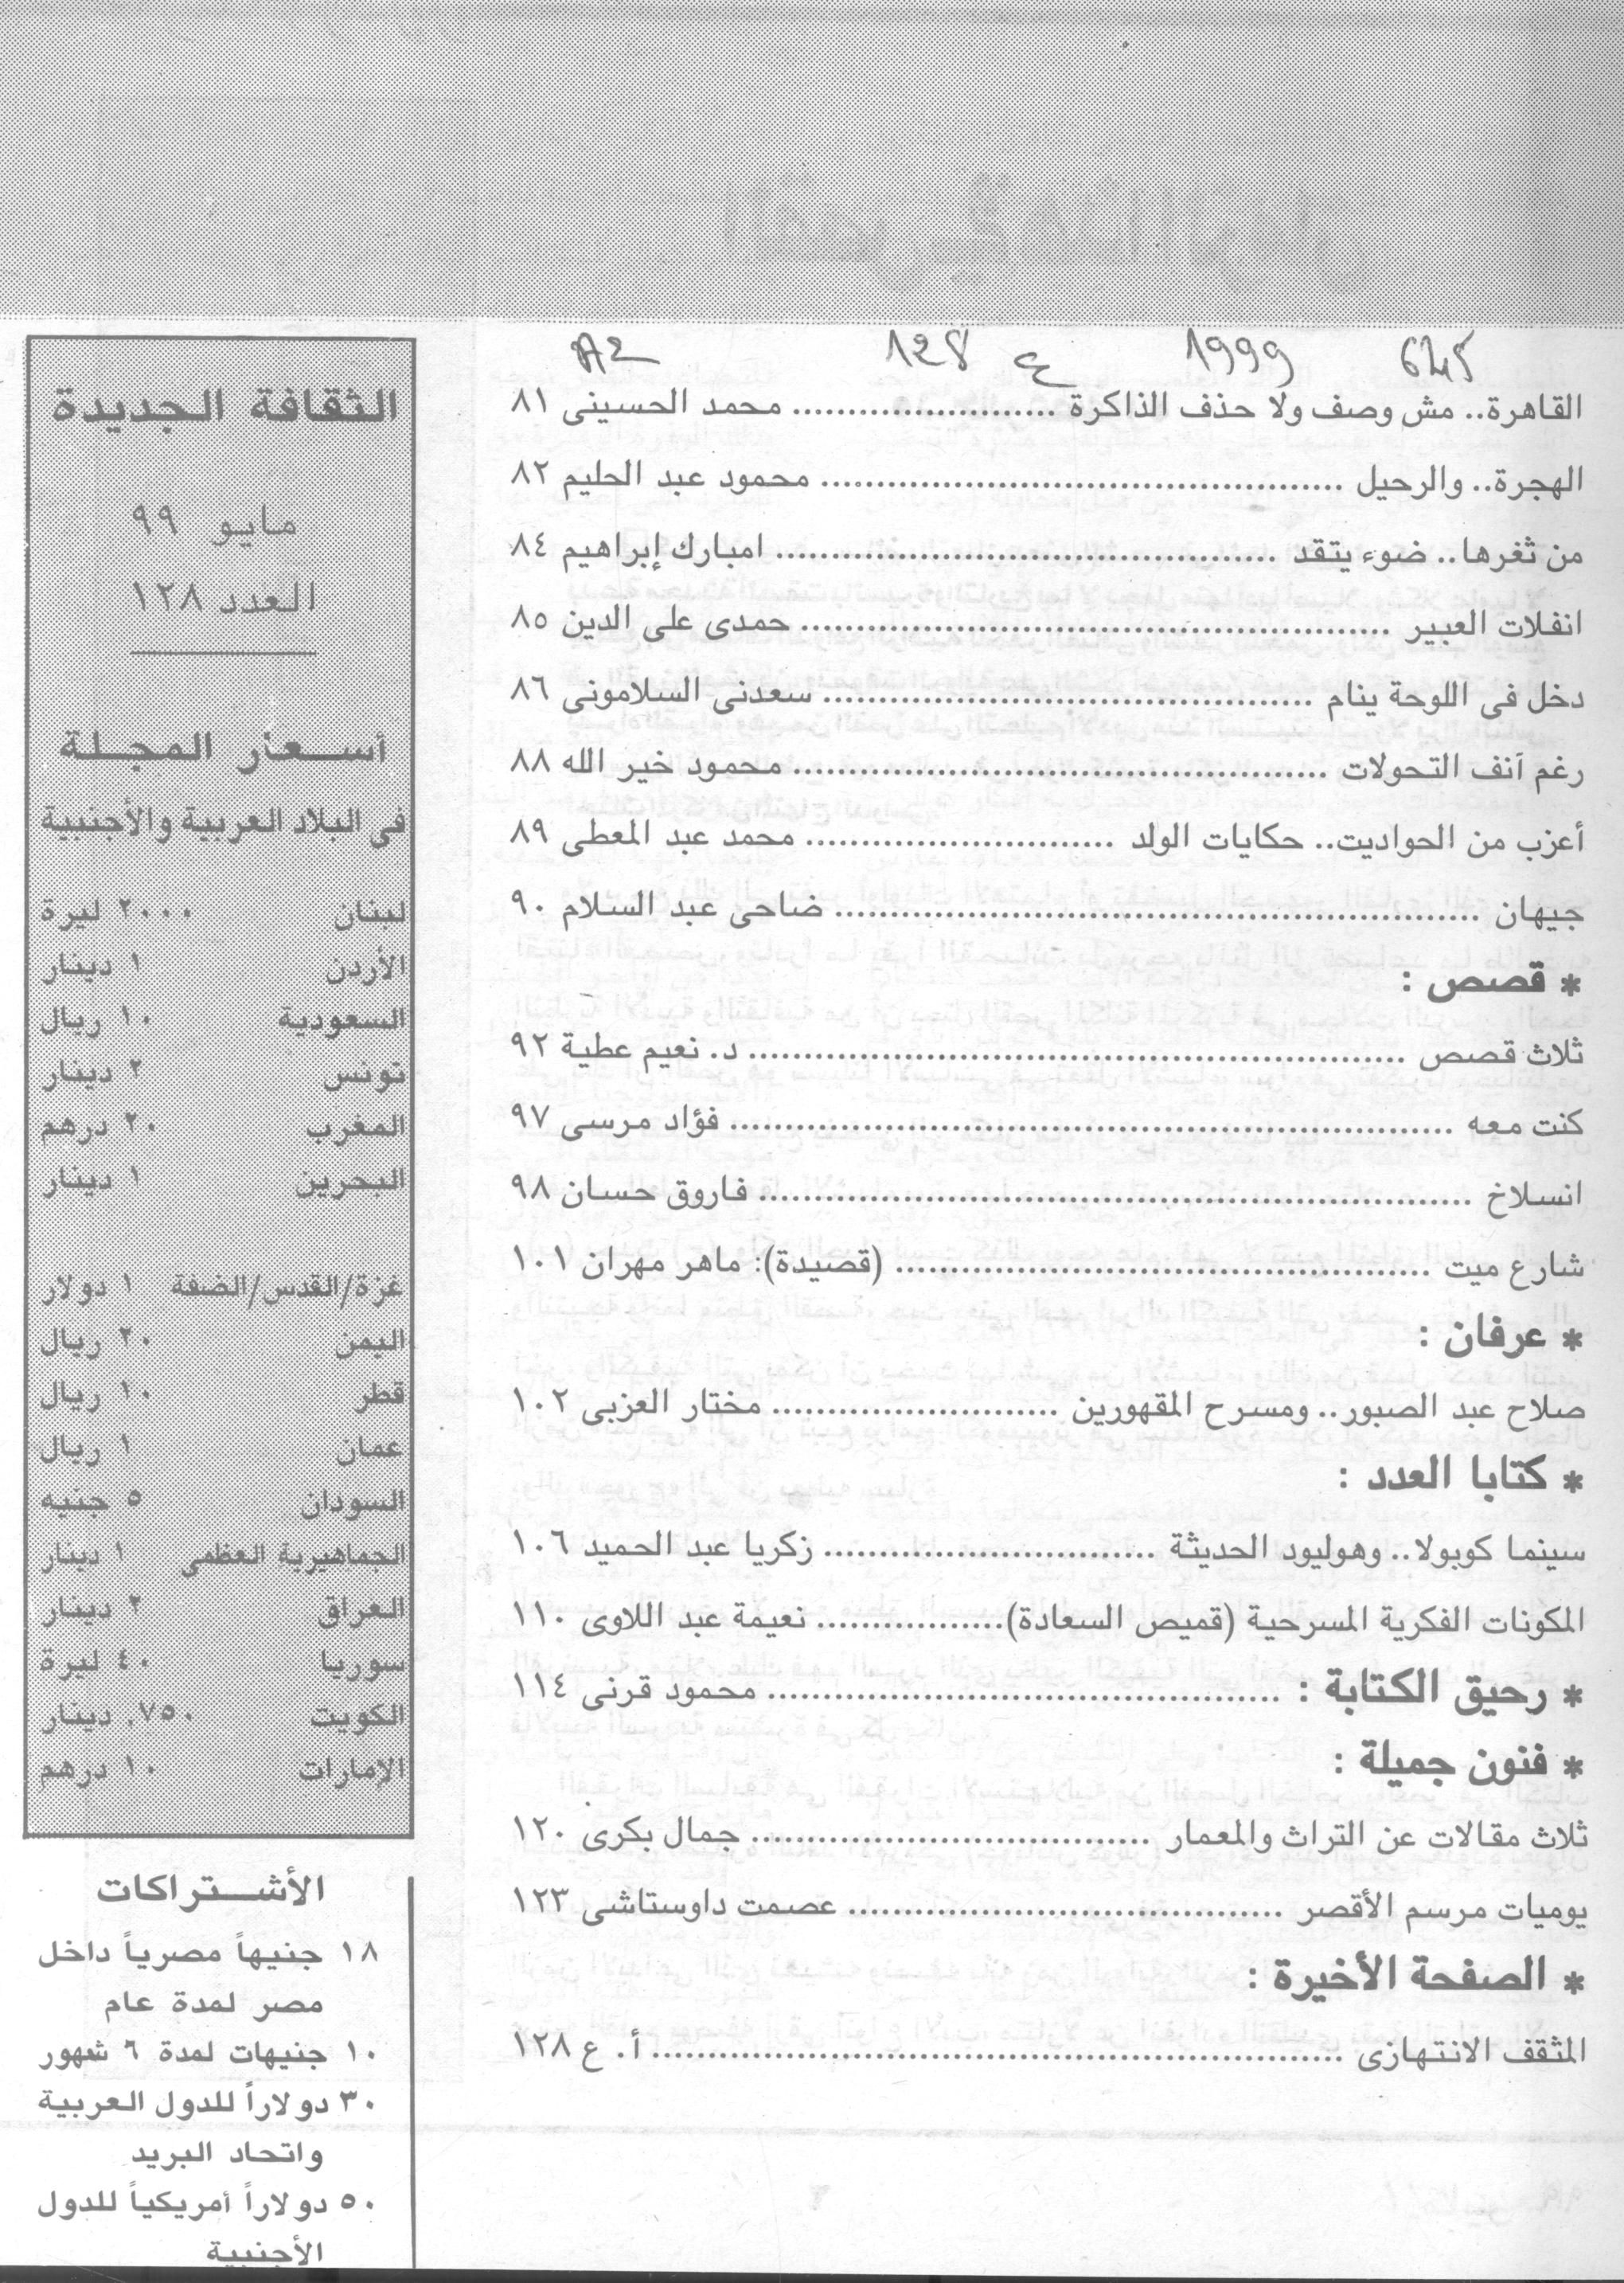 A2 128 ع 1999
القاهرة.. مش وصف ولا حذف الذاكرة ........................ محمد الحسينى ٨١
الهجرة.. والرحيل ................................................ محمود عبد الحليم ٨٢
من ثغرها.. ضوء يتقد .............................................. امبارك إبراهيم ٨٤
انفلات العبير ...................................................... حمدى على الدين ٨٥
دخل فى اللوحة ينام ............................................. سعدنى السلامونى ٨٦
رغم آنف التحولات ................................................. محمود خير الله ٨٨
أعزب من الحواديت.. حكايات الولد ............................ محمد عبد المعطى ٨٩
جيهان ........................................................... ضاحى عبد السلام ٩٠
* قصص :
ثلاث قصص ............................................................ د. نعيم عطية ٩٢
كنت معه .................................................................. فؤاد مرسى ٩٧
انسلاخ ................................................................. فاروق حسان ٩٨
شارع ميت ................................................. (قصيدة): ماهر مهران ١٠١
* عرفان :
صلاح عبد الصبور.. ومسرح المقهورين .......................... مختار العزبى ١٠٢
* كتابا العدد :
سينما كوبولا.. وهوليود الحديثة .............................. زكريا عبد الحميد ١٠٦
المكونات الفكرية المسرحية (قميص السعادة)................. نعيمة عبد اللاوى ١١٠
* رحيق الكتابة : ............................................... محمود قرنى ١١٤
* فنون جميلة :
ثلاث مقالات عن التراث والمعمار ..................................... جمال بكرى ١٢٠
يوميات مرسم الأقصر ........................................ عصمت داوستاشى ١٢٣
* الصفحة الأخيرة :
المثقف الانتهازى ............................................................... أ. ع ١٢٨
الثقافة الجديدة
مايو ٩٩
العدد ١٢٨
أسعار المجلة
فى البلاد العربية والأجنبية
لبنان ٢٠٠٠ ليرة
الأردن ١ دينار
السعودية ١٠ ريال
تونس ٢ دينار
المغرب ٢٠ درهم
البحرين ١ دينار
غزة/القدس/الضفة ١ دولار
اليمن ٢٠ ريال
قطر ١٠ ريال
عمان ١ ريال
السودان ٥ جنيه
الجماهيرية العظمى ١ دينار
العراق ٢ دينار
سوريا ٤٠ ليرة
الكويت ٧٥٠, دينار
الإمارات ١٠ درهم
الأشتراكات
١٨ جنيهاً مصرياً داخل
مصر لمدة عام
١٠ جنيهات لمدة ٦ شهور
٣٠ دولاراً للدول العربية
واتحاد البريد
٥٠ دولاراً أمريكياً للدول
الأجنبية